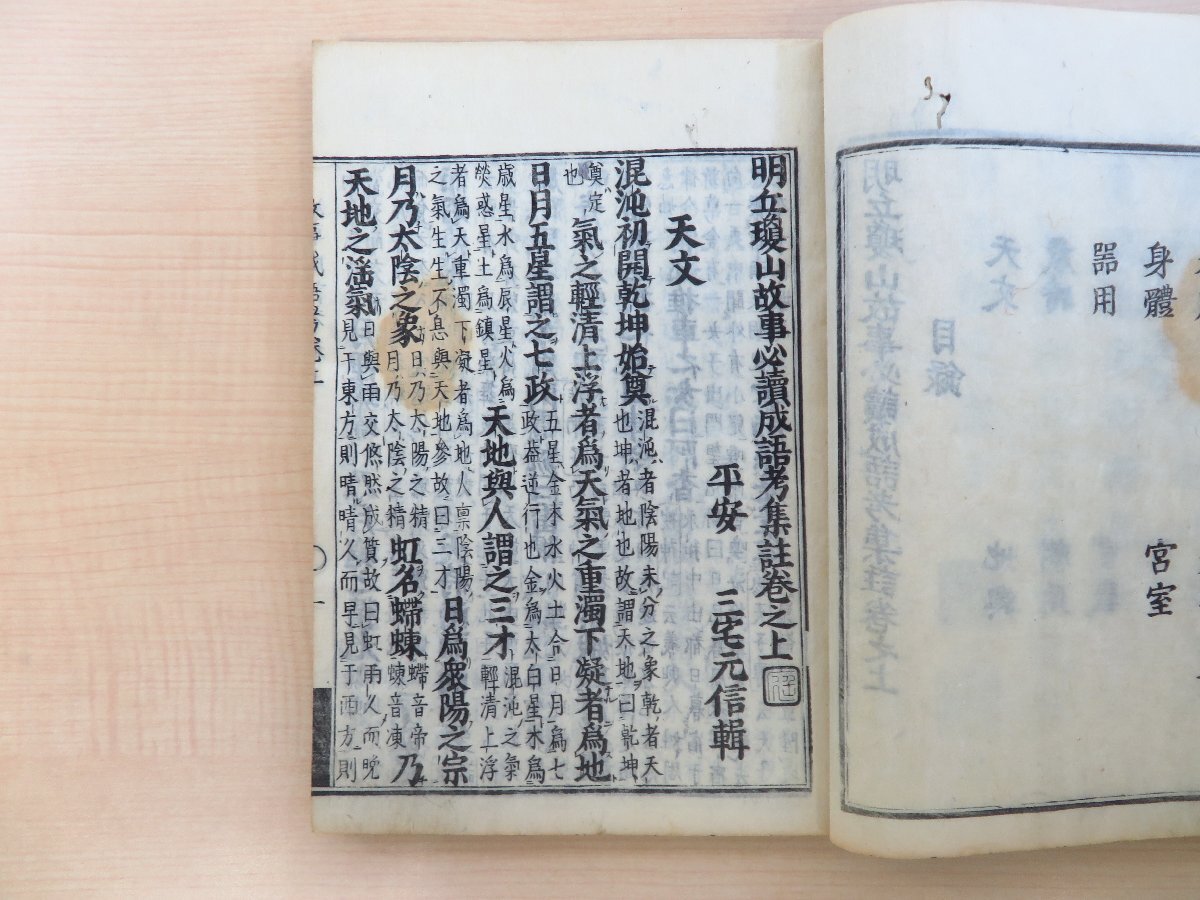 身體　宮室
器用
明丘瓊山故事必讀成語考集註卷之上
平安　三宅元信輯
天文
混沌初開乾坤始奠
混沌者陰陽未分之象乾者天
也坤者地也故謂天地曰乾坤
奠定
也
氣之輕清上浮者爲天氣之重濁下凝者爲地
日月五星謂之七政
五星金木水火土合日月爲七
政葢逆行也金爲太白星木爲
歲星水爲辰星火爲
熒惑星土爲鎮星
天地與人謂之三才
混沌之氣
輕清上浮
者爲天重濁下凝者爲地人禀陰陽
之氣生生不息與天地參故曰三才
日爲衆陽之宗
月乃太陰之象
日乃太陽之精
月乃太陰之精
虹名螮蝀
螮音帝
蝀音凍
乃
天地之滛氣
日與雨交倐然成質故曰虹雨久而晚
見于東方則晴晴久而早見于西方則